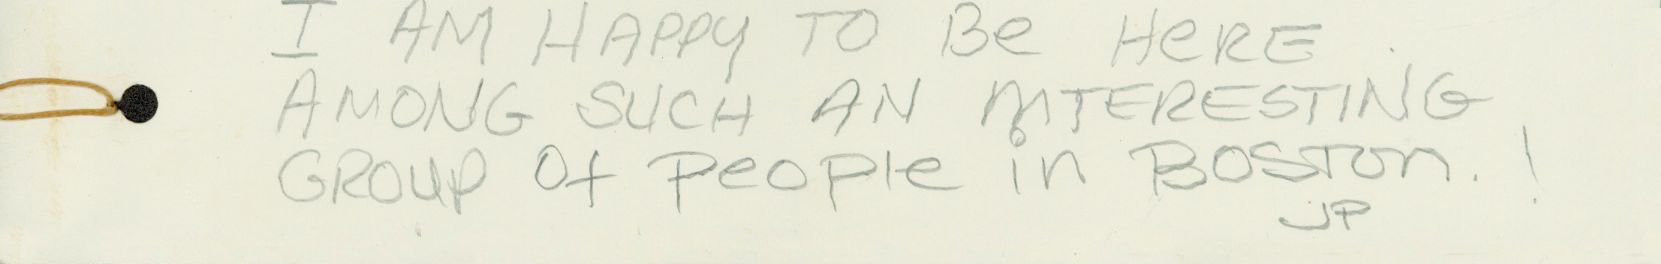 I AM HAPPY TO Be HeRE.
AMONG SUCH AN INTERESTING
GROUP Of People in BOSTon. !
JP